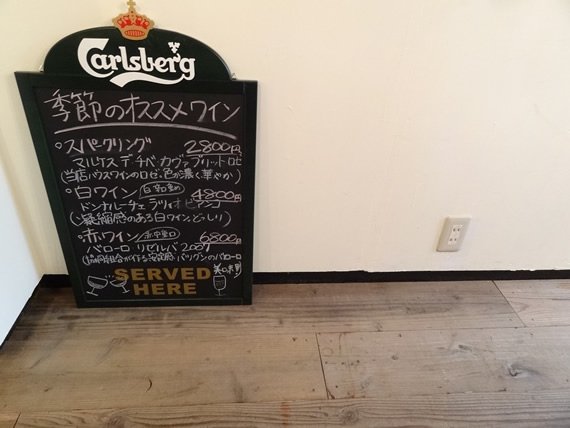 Carlsberg
季節のオススメワイン
○スパークリング 2800円
マルケス デ チベ・カヴァ ブリット ロゼ
(当店ハウスワインのロゼ・色が濃く華やか)
○白ワイン 白・辛口 4800円
ドンナルーチェ ラツィオ ビアンコ
(凝縮感のある白ワインどっしり)
○赤ワイン 赤・中重口 6800円
バローロ リゼルバ 2007
バローロ
SERVED
HERE